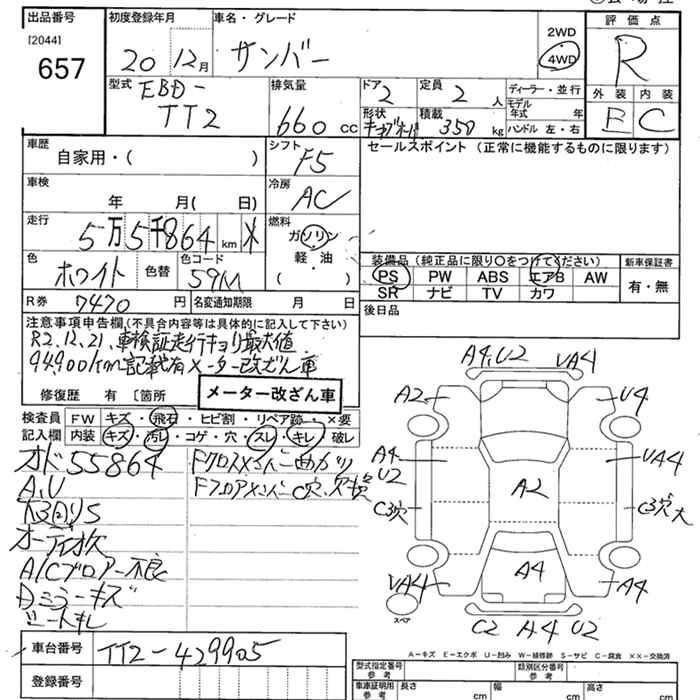 出品番号 初度登録年月 車名・グレード 評価点
[2044] 20 12月 サンバー 2WD R
657 4WD
型式 EBD- 排気量 ドア 定員 ディーラー・並行 外装 内装
TT2 660 cc 2 2 人 モデル年式 年 E C
形状 積載 350 kg ハンドル 左・右
車歴 シフト F5 セールスポイント (正常に機能するものに限ります)
自家用・( )
車検 冷房 AC
年 月( 日)
走行 燃料
5万5千864 km ガソリン
軽・油
( )
色 ホワイト 色替 色コード 59M
装備品(純正品に限り〇をつけてください) 新車保証書
PS PW ABS エアB AW 有・無
SR ナビ TV カワ
R券 7470 円 名変通知期限 月 日 後日品
注意事項申告欄(不具合内容等は具体的に記入して下さい)
R2.12.21、車検証走行キョリ最大値
94,900km記載有メーター改ざん車
修復歴 有 〔箇所 メーター改ざん車
検査員 FW キズ・飛石・ヒビ割・リペア跡 ×要
記入欄 内装 キズ・汚レ・コゲ・穴・スレ・キレ・破レ
オド55864 Fクロスメンバー曲がり
A,U FフロアメンバーC穴、欠損
オーディオ欠
A/Cブロアー不良
Dミラーキズ
シートキレ
A4,U2 UA4
A2 U4
A4 UA4
U2
A2
C3穴 C3穴大
UA4 A4 A4
スペア
C2 A4 U2
A-キズ E-エクボ U-凹み W-補修跡 S-サビ C-腐食 XX-交換済
車台番号 TT2-429905
登録番号
型式指定番号 参考 類別区分番号 参考
車庫証明用 参考 長さ cm 幅 cm 高さ cm